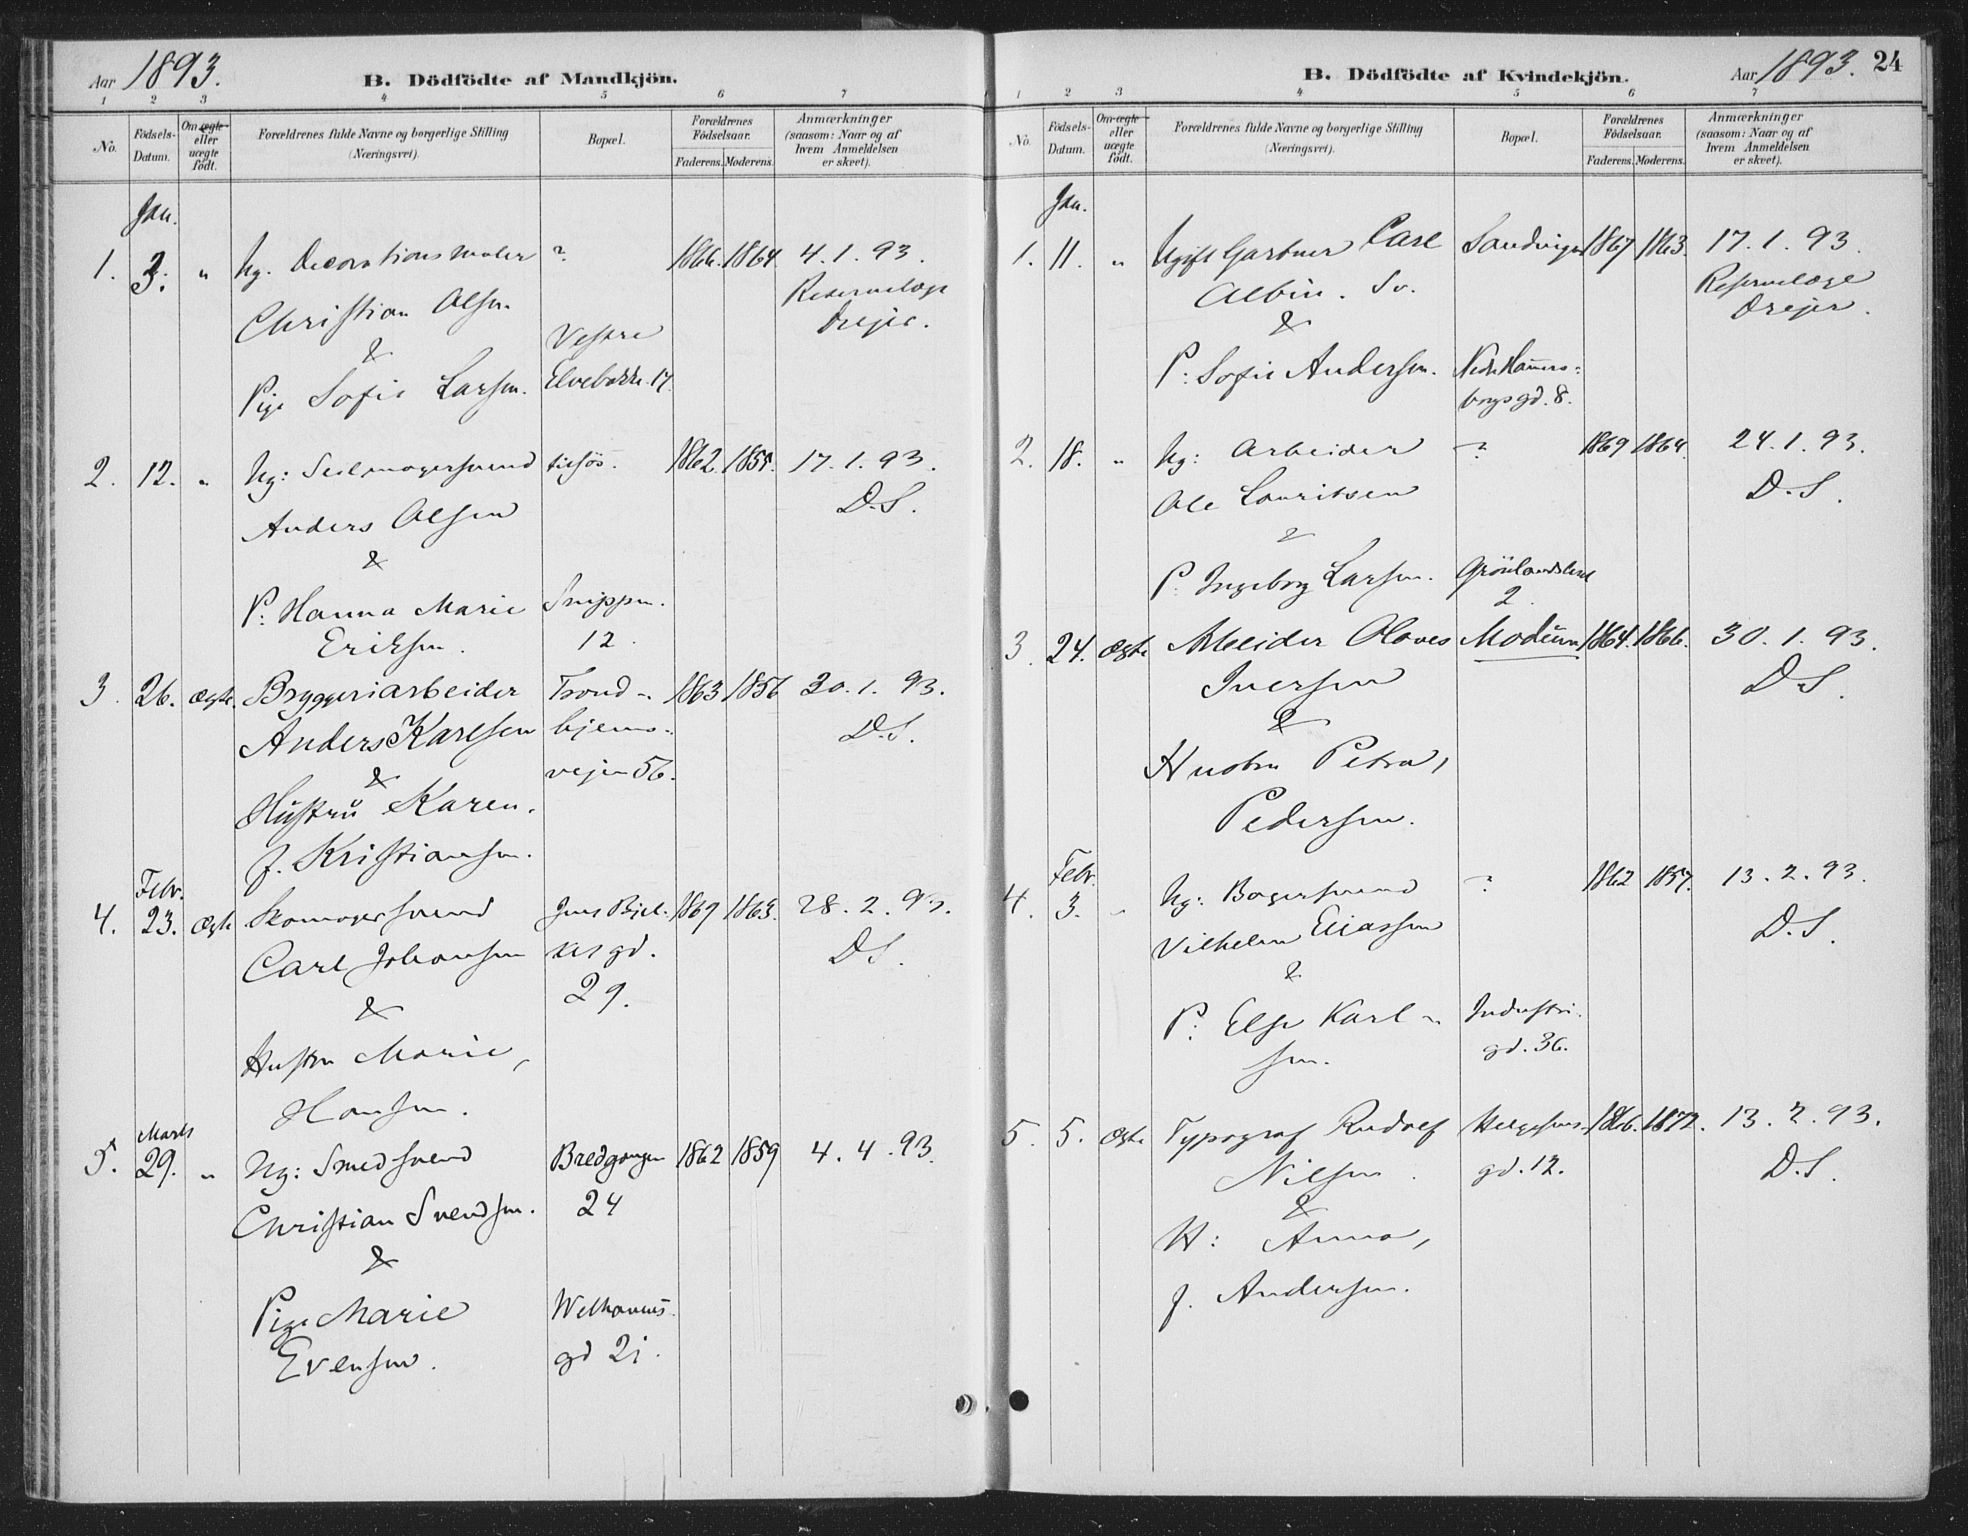 Aar 1893.
B. Dödfödte af Mandkjön.
1 2 3 4 5 6 7
No.
Födsels-Datum.
Om ægte eller uægte født.
Forældrenes fulde Navne og borgerlige Stilling (Næringsvei).
Bopæl.
Forældrenes Födselsaar.
Faderens. Moderens.
Anmærkninger (saasom: Naar og af hvem Anmeldelsen er skeet).
Jan.
1. 3. " Ug. Decorationsmaler ? 1866. 1864. 4.1.93.
Christian Olsen. Reservelæge
& Vestre Drejer.
Pige Sofie Larsen. Elvebakke 17.
2. 12. " Ug: Seilmagersvend tilsjøs. 1862. 1855. 17.1.93.
Anders Olsen D.S.
&
P: Hanna Marie Snippen.
Eriksen. 12.
3. 26. Ægte. Bryggeriarbeider Trond- 1863 1856 30.1.93.
Anders Karlsen hjems- D.S.
& vejen 56.
Hustru Karen.
f. Kristiansen.
Febr.
4. 23. Ægte Skomagersvend Jens Bjel- 1869 1863. 28.2.93.
Carl Johansen kes gd. D.S.
& 29.
Hustru Marie,
Hansen.
Marts
5. 29. " Ug: Smedsvend Bredgangen 1862 1859 4.4.93.
Christian Svendsen. 24
&
Pige Marie Welhavens
Evensen. gd 21.
B. Dödfödte af Kvindekjön.
Aar 1893. 24
1 2 3 4 5 6 7
No.
Födsels-Datum.
Om ægte eller uægte födt.
Forældrenes fulde Navne og borgerlige Stilling (Næringsvei).
Bopæl.
Forældrenes Födselsaar.
Faderens. Moderens.
Anmærkninger (saasom: Naar og af hvem Anmeldelsen er skeet).
Jan.
1. 11. " Ugift Gartner Carl Sandvigen 1867 1863. 17.1.93.
Albin. Sv. Reservelæge
& Drejer.
P: Sofie Andersen. Nedre Hammers-
borgs gd. 8.
2. 18. " Ug: Arbeider ? 1869 1864. 24.1.93.
Ole Lauritsen D.S.
&
P. Ingeborg Larsen. Grönlandsleret
2
3. 24. Ægte Arbeider Olaves Modum 1864. 1866. 30.1.93.
Iversen D.S.
&
Hustru Petra,
Pedersen.
Febr.
4. 3. " Ug: Bagersvend ? 1862 1857. 13.2.93.
Vilhelm Eliassen D.S.
&
P: Else Karl- Industri.
sen. gd. 36.
5. 5. Ægte Typograf Rudolf Helgesens 1866. 1872. 13.2.93.
Nilsen. gd. 12. D.S.
&
H: Anna,
f. Andersen.